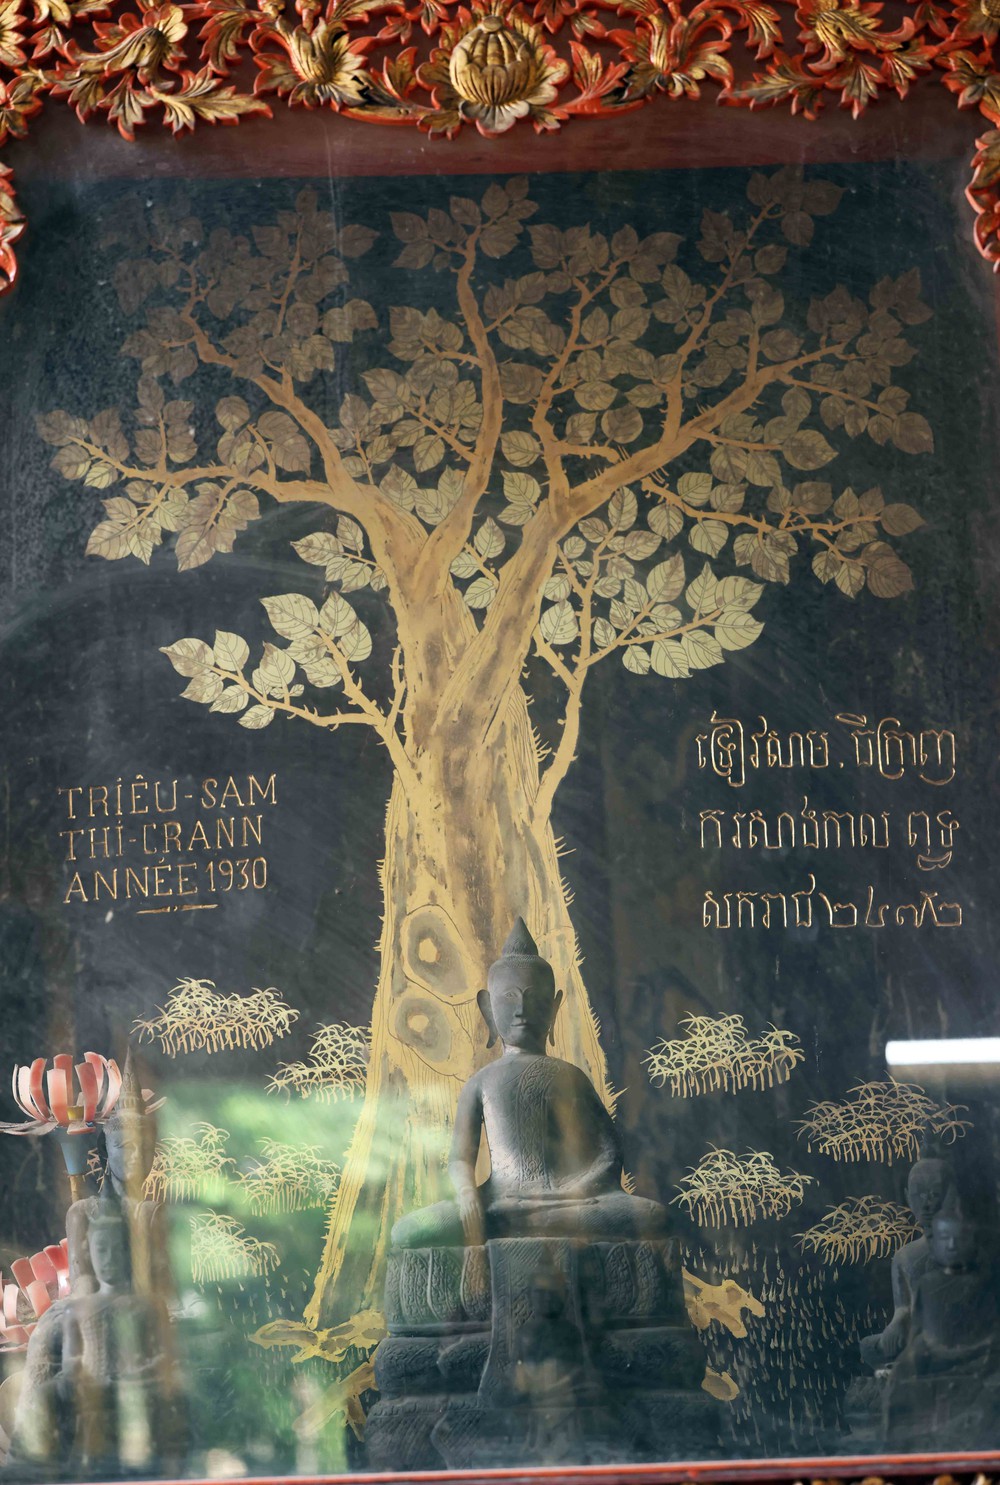 TRIÊU-SAM
THI-CRANN
ANNÉE 1930
ទ្រៀវសាម . ធីក្រាញ
ករសាងកាល ពុទ្ធ
សករាជ ២៤៧២